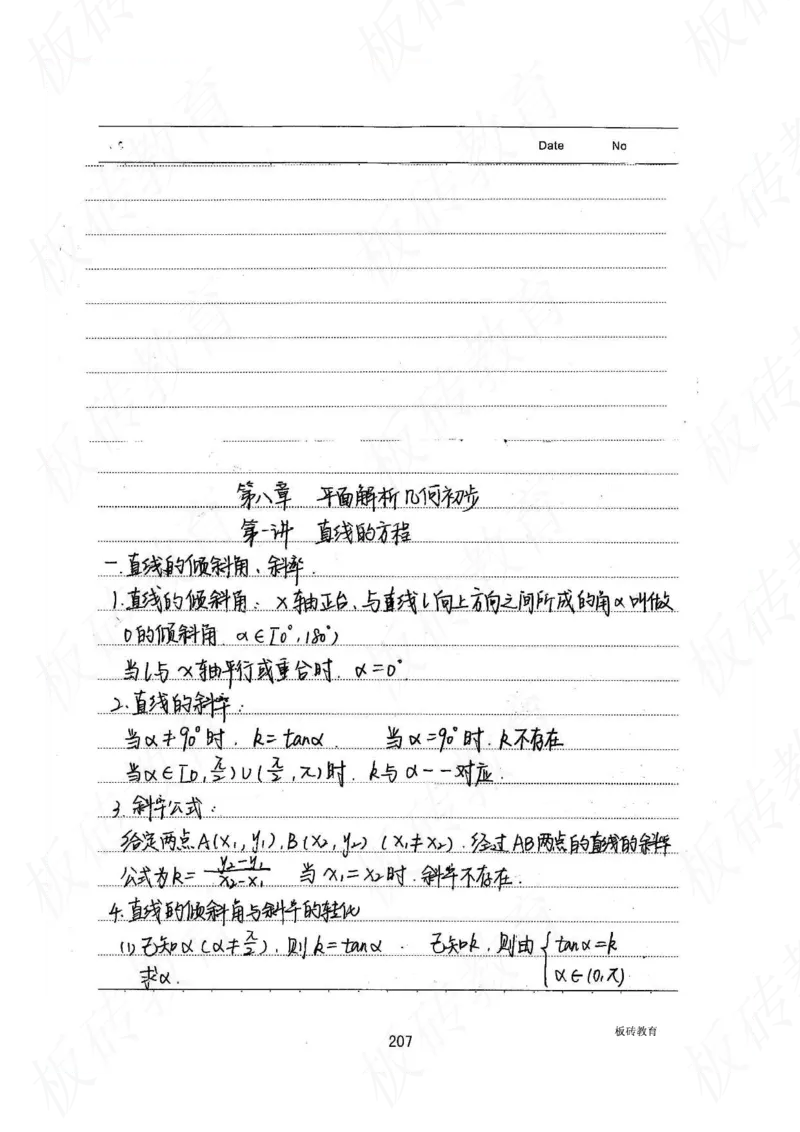 Date No
第八章 平面解析几何初步
第一讲 直线的方程
一.直线的倾斜角、斜率.
1.直线的倾斜角: x轴正台、与直线l向上方向之间所成的角α叫做
0的倾斜角 α∈[0°,180°)
当l与x轴平行或重合时. α=0°.
2.直线的斜率:
当α≠90°时. k=tanα. 当α=90°时.k不存在
当α∈[0,π/2)∪(π/2,π)时. k与α一一对应.
3.斜率公式:
给定两点A(x₁,y₁),B(x₂,y₂) (x₁≠x₂).经过AB两点的直线的斜率
公式为k=(y₂-y₁)/(x₂-x₁) 当x₁=x₂时.斜率不存在.
4.直线的倾斜角与斜率的转化
(1)已知α(α≠π/2),则k=tanα. 已知k,则由{tanα=k
α∈(0,π)
求α.
207
板砖教育